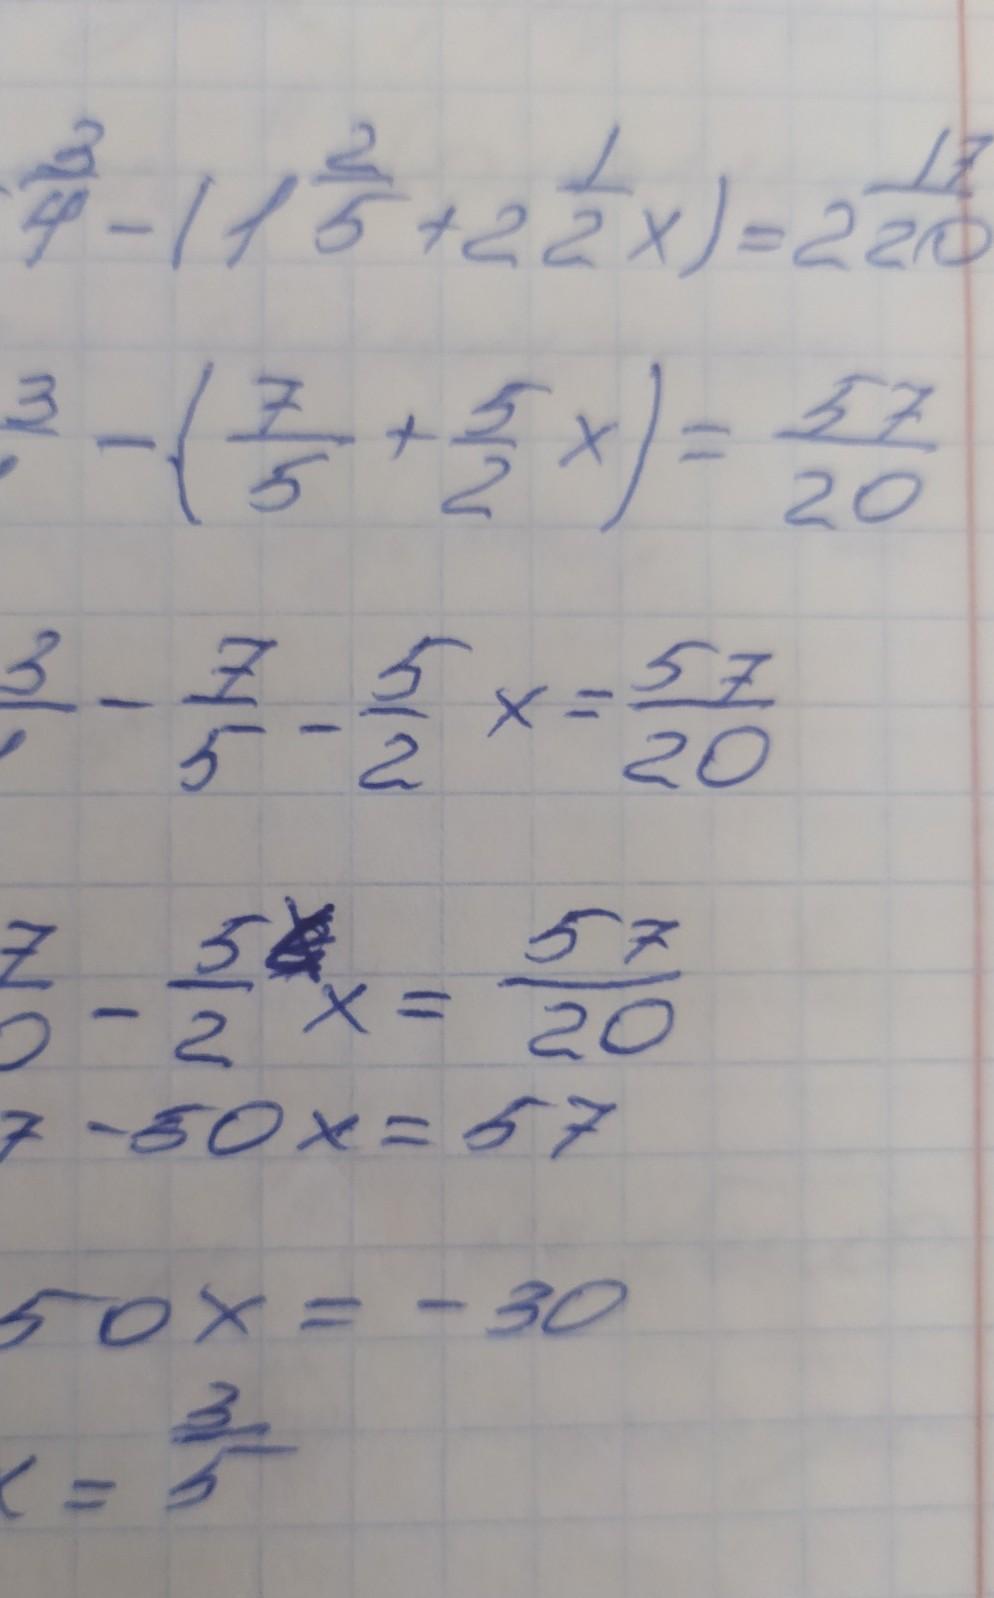 3/4 - (1 2/5 + 2 1/2 x) = 2 17/20
3 - (7/5 + 5/2 x) = 57/20
3 - 7/5 - 5/2 x = 57/20
7 - 5/2 x = 57/20
7 - 50x = 57
50x = -30
x = 3/5